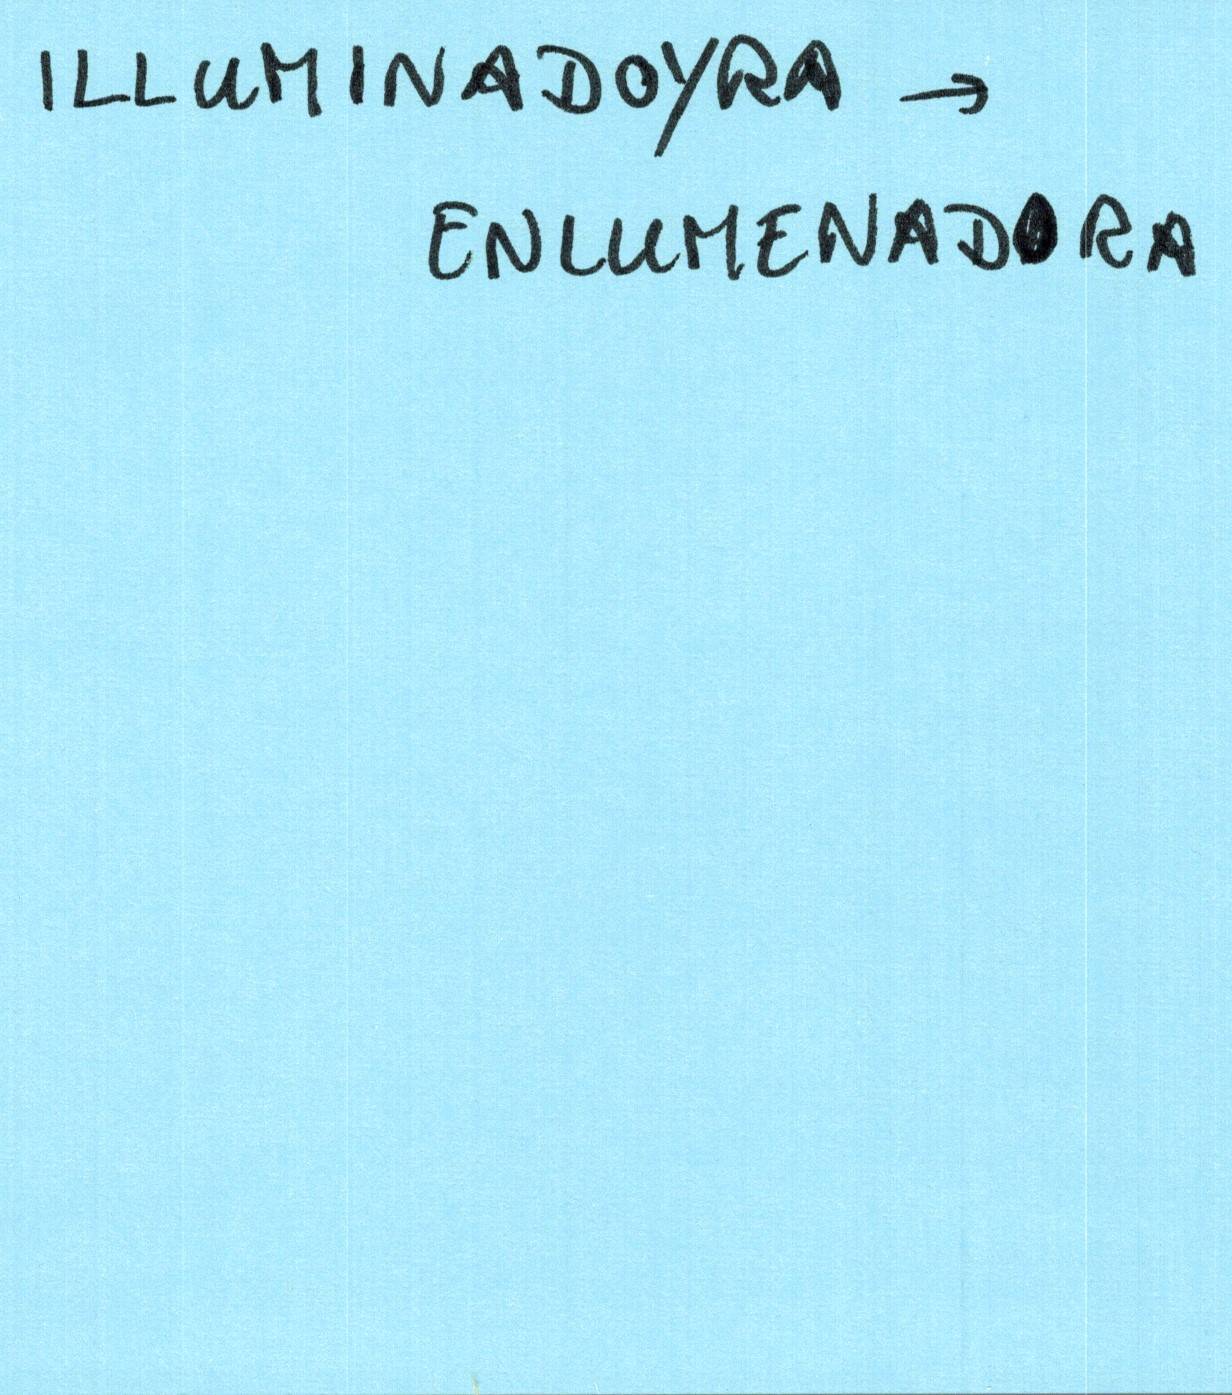 ILLUMINADOYRA →
ENLUMENADORA